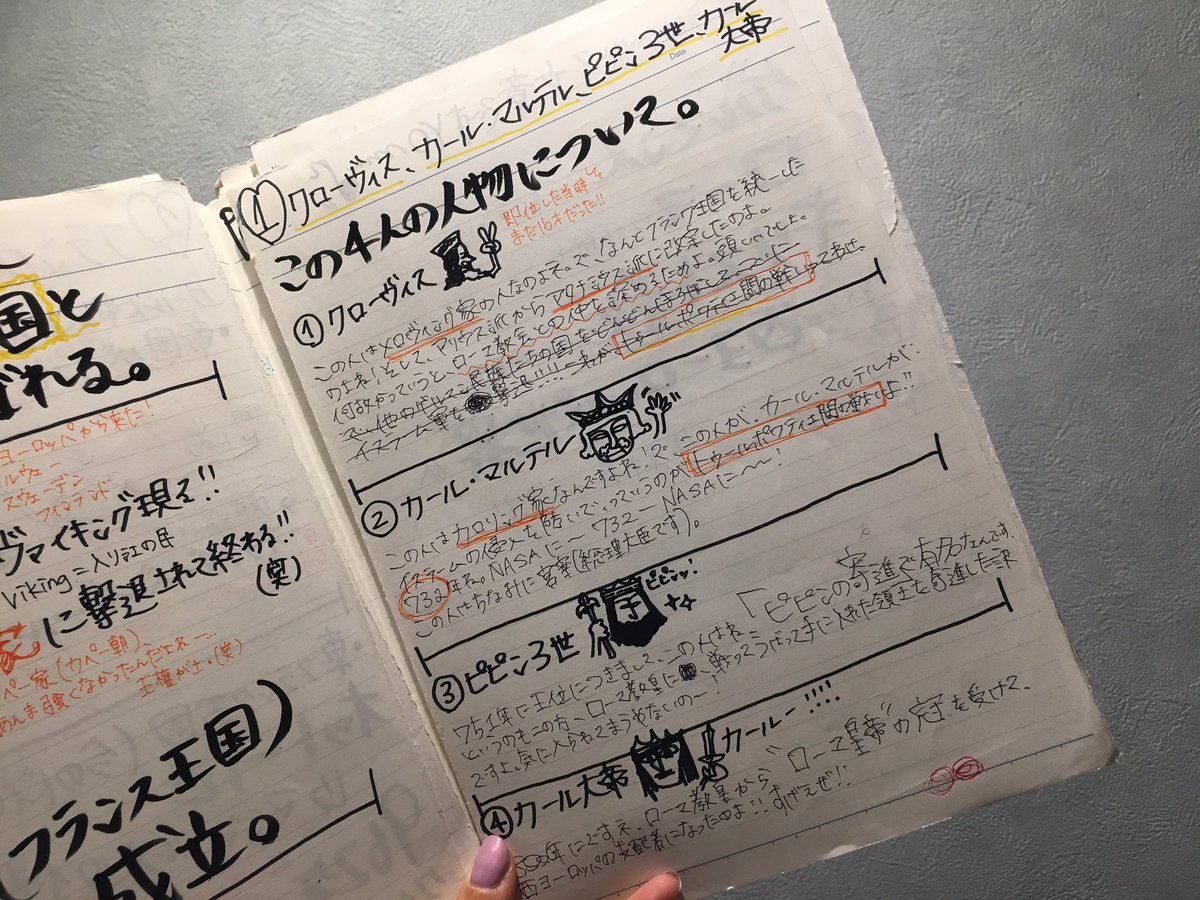 国と
れる。
ヨーロッパから来た!
ルウェー
スウェーデン
フィンランド
ヴァイキング現る!!
Viking = 入り江の民
に撃退されて終わる!!
(笑)
ペー家(カペー朝)、
あんま強くなかったんだよねー…
王権がさ。(笑)
フランス王国)
成立。
Date
① クローヴィス、カール・マルテル、ピピン3世、カール
大帝
この4人の人物について。
即位した当時は
まだ16才だった!!
① クローヴィス
この人はメロヴィング家の人なのよネ。で、なんとフランク王国を統一した
のよね!そして、アリウス派からアタナシウス派に改宗したのよ。
何故かっていうと、ローマ教会との仲を深めるためよ。頭いいでしょ。
で、他のゲルマン民族たちの国をどんどんほろぼして
イスラーム軍を撃退!!!!これがトゥール・ポワティエ間の戦い
② カール・マルテル
この人はカロリング家なんですよね!で、この人が、カール・マルテルが、
イスラームの侵入を防いでいっていうのがトゥールポワティエ間の戦いよ!!
732年ね。NASAに〜732〜NASAに〜〜!
この人はちなみに宮宰(総理大臣です)。
③ ピピン3世
ピピンッ!
751年に王位につきまして、この人はね=「ピピンの寄進で有力なんです。
というのもこの方、ローマ教皇に、戦ってうばって手に入れた領土を寄進した訳
ですよ。気に入られてまうやないの〜!
④ カール大帝
カールー!!!!
800年にですネ、ローマ教皇から"ローマ皇帝"の冠を受けて、
西ヨーロッパの支配者になったのよ!!すげえぜ!!